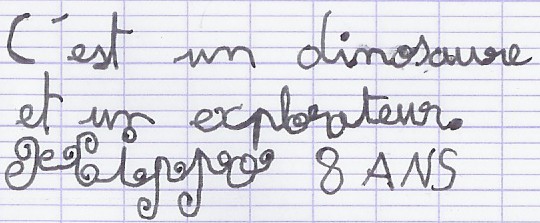 C'est un dinosaure
et un explorateur.
8 ANS